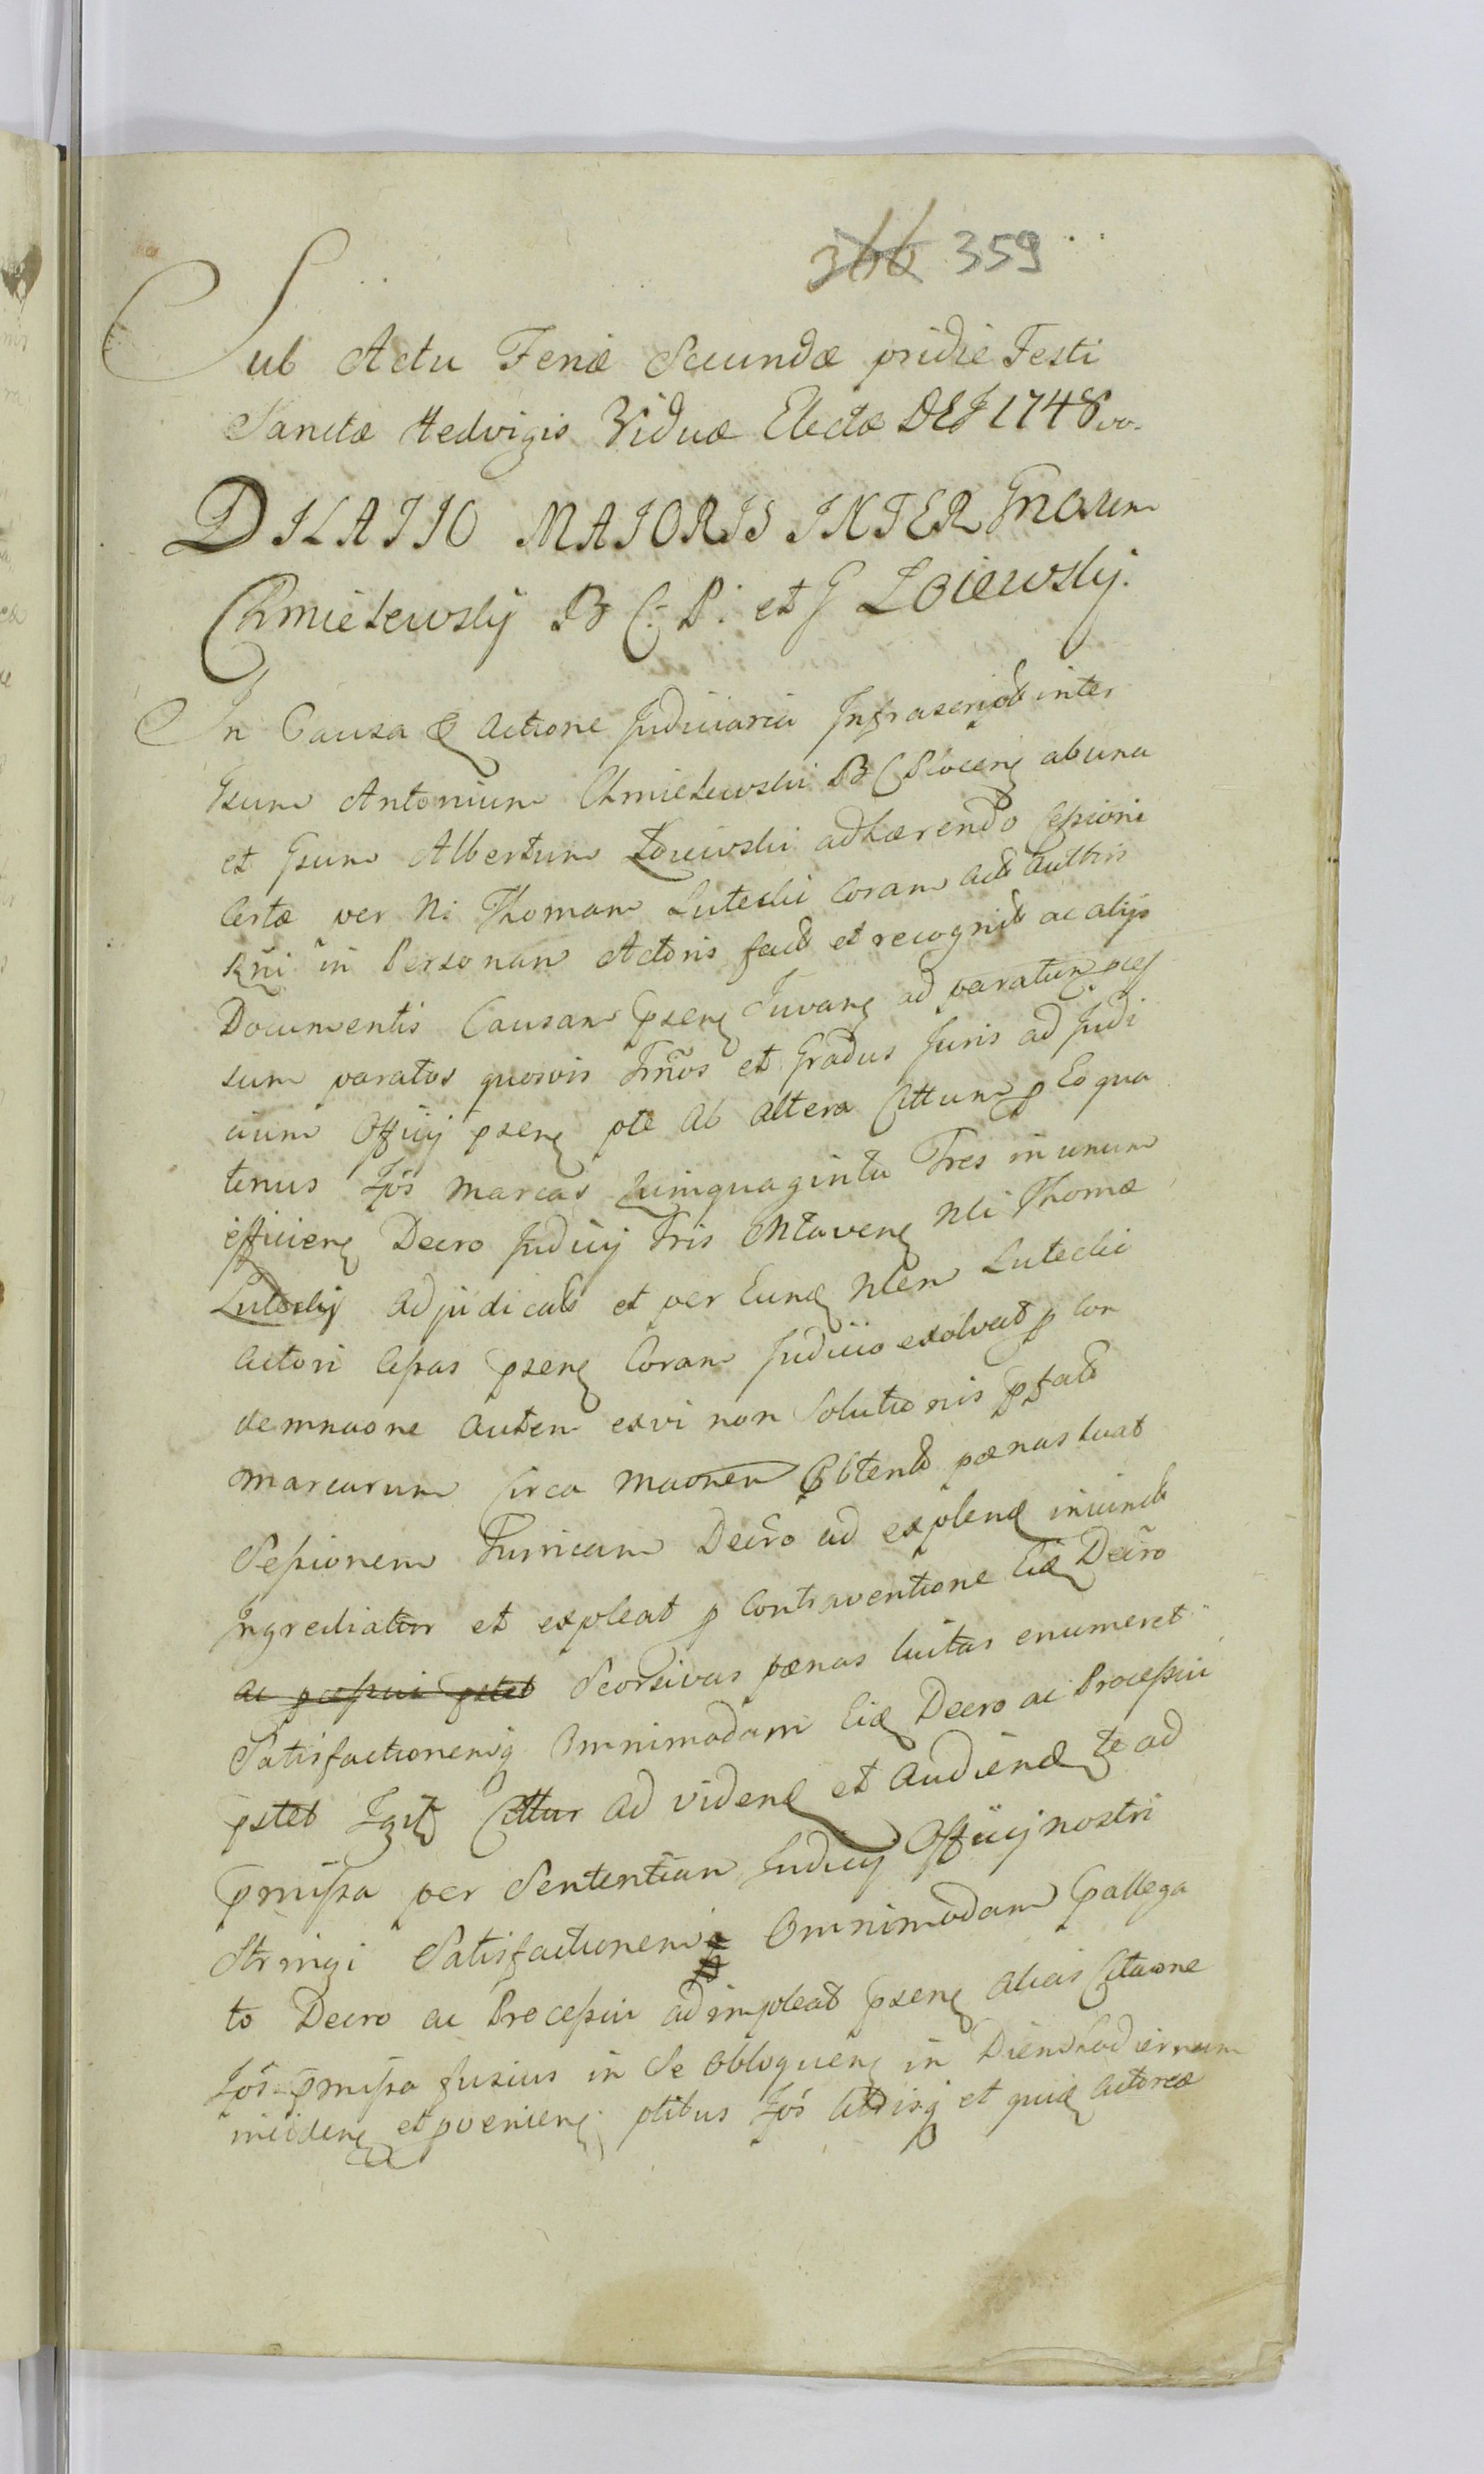 366 359
Sub Actu Feriæ Secundæ pridie Festi
Sanctæ Hedvigis Viduæ Electæ DEJ 1748vo.
DILATIO MAJORIS INTER Gnosum
Chmielewskij B C. P. et G Łoiewskij.
In Causa & Actione Judiciaria Infrascript inter
Gsum Antonium Chmielewski B C Plocen ab una
et Gsum Albertum Łoiewski adhærendo Cessioni
Certæ per N. Thomam Lutecki Coram Act Authen
Rñi in Personam Actoris fact et recognit ac alijs
Documentis Causam psen Juvan ad paratum
sum paratos quosvis Trños et Gradus Juris ad Judi
cium Officij psen pte ab altera Cittum p Eo qua
tenus Marcas quinquaginta Tres in unum
efficien Decro Judicij Tris Mlaven Nli Thomæ
Luteckij adjudicat et per Eund Nlem Lutecki
Actori Cessas psen Coram Judicio exolvat p Con
demnaone autem ex vi non Solutionis pfat
Marcarum Circa Maonem Obtent pænas luat
Sessionem Turricam Decro ad explend iniunct
Ingrediatur et expleat p Contraventione Eid Decro
ac pcessui pstet Seorsivas pænas luitas enumeret
Satisfactionemq Omnimodam Eid Decro ac Processui
pstet Cittur ad vidend et audiend te ad
pmissa per Sententiam Judicij Officij nostri
Stringi Satisfactionemq Omnimodam pallega
to Decro ac Processui adimpleat psen alias Citaone
pmissa fusius in Se obloquen in Diem hodiernum
inciden et pvenien ptibus et quid Actorea